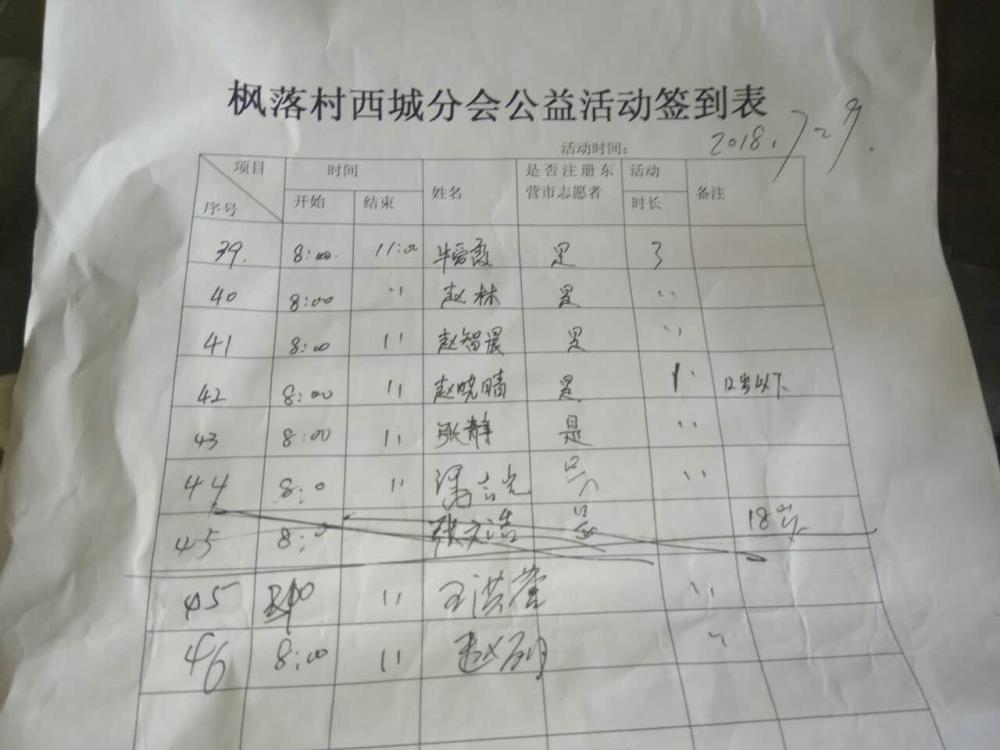 枫落村西城分会公益活动签到表
活动时间: 2018.7-29.
项目 序号 时间 姓名 是否注册东营市志愿者 活动时长 备注
开始 结束
39. 8:00. 11:00 牛爱霞 是 3
40 8:00 〃 赵林 是 〃
41 8:00 11 赵智晨 是 〃
42 8:00 11 赵晓晴 是 1 12岁以下
43 8:00 11 张静 是 〃
44 8:0 11 是 〃
45 8:0 张文浩 是 18岁
45 11 王洪萱 〃
46 8:00 11 赵丽 〃